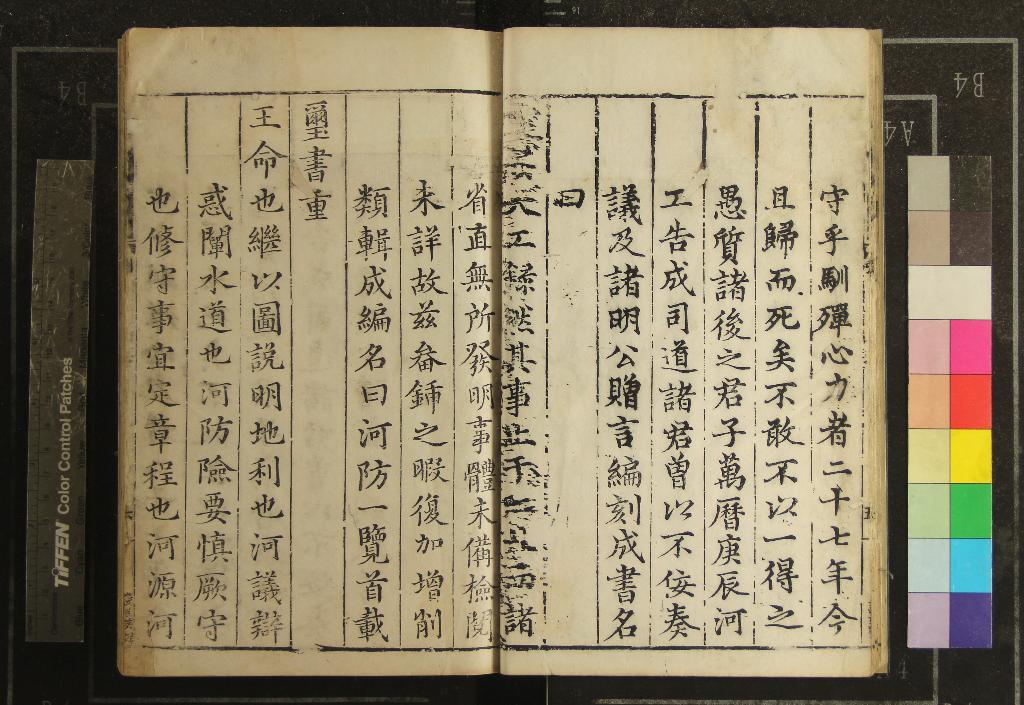 守乎馴殫心力者二十七年今
且歸而死矣不敢不以一得之
愚質諸後之君子萬曆庚辰河
工告成司道諸君曾以不佞奏
議及諸明公贈言編刻成書名
曰
其事止于諸
省直無所發明事體未備檢閱
未詳故茲畚鍤之暇復加增削
類輯成編名曰河防一覽首載
璽書重
王命也繼以圖説明地利也河議辯
惑闡水道也河防險要慎厥守
也修守事宜定章程也河源河
TIFFEN Color Control Patches
B4
A4
B4